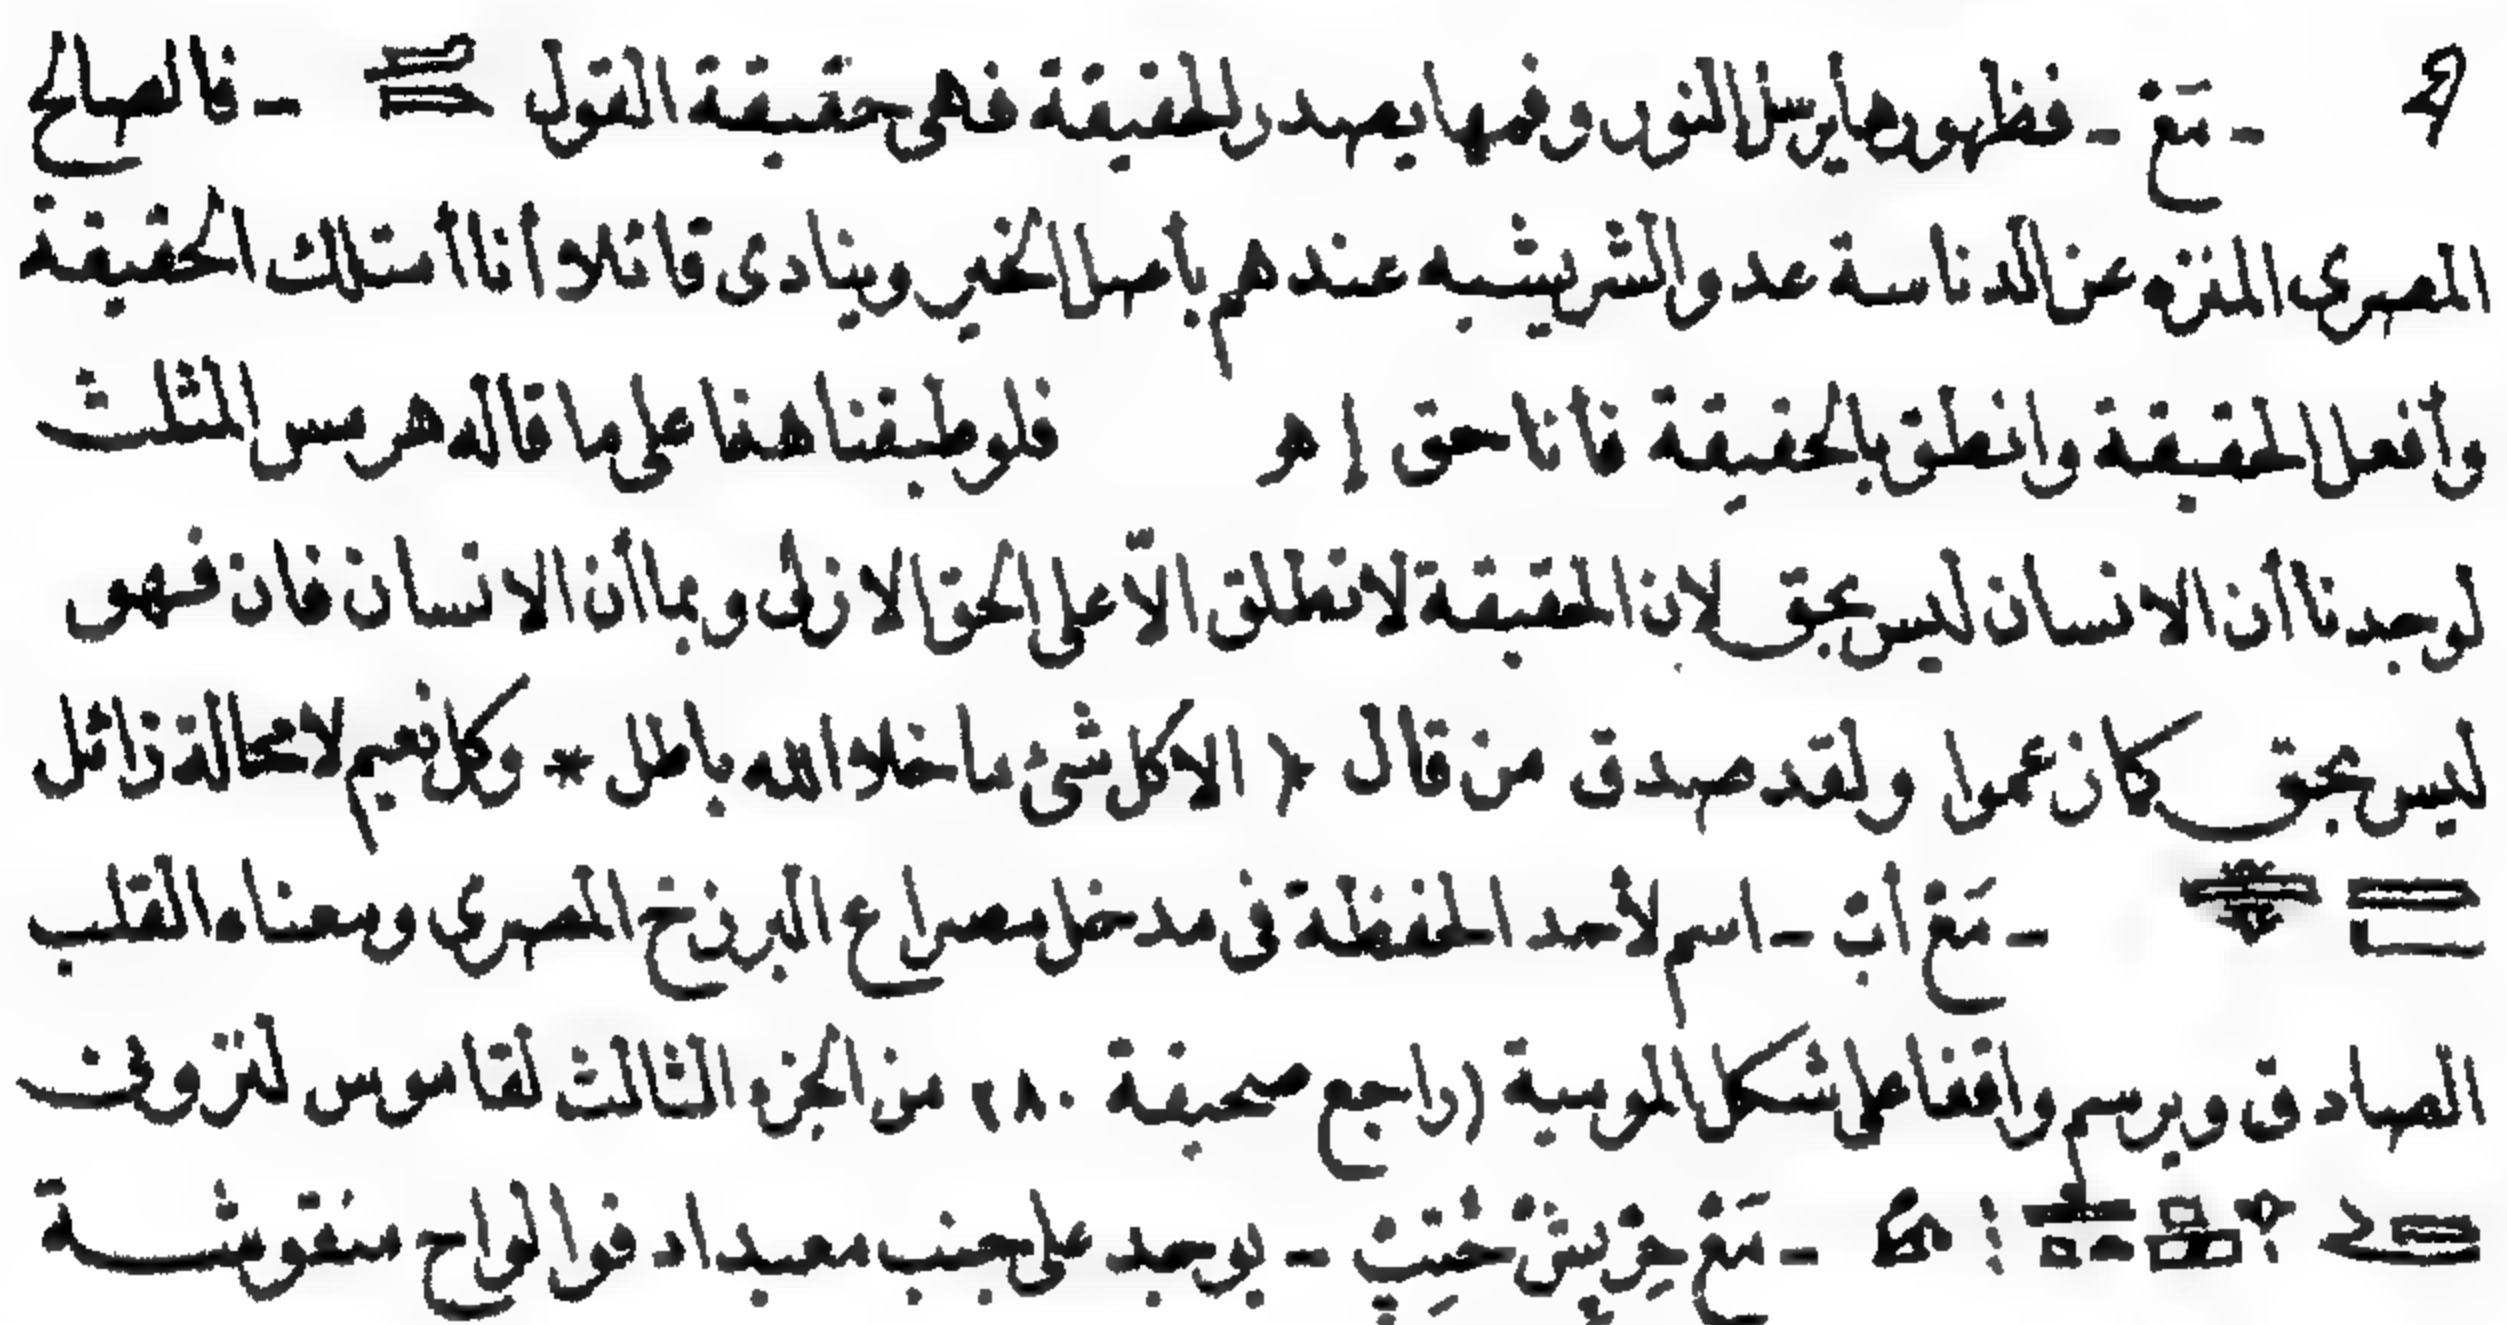 - مَعْ - فظهورها يرسل النور وفمها يصدر للحقيقة فهى حقيقة القول - فالصالح
المصرى المنزه عن الدناسة عدو الشر يشبه عندهم بأصل الخير وينادى قائلا وأنا أمتلك الحقيقة
وأفعل الحقيقة وانطق بالحقيقة فأنا حق اه فلو طبقنا هنا على ما قاله هرمس المثلث
لوجدنا أن الانسان ليس بحق لان الحقيقة لا تطلق الّا على الحق الازلى وبما أن الانسان فان فهو
ليس بحق كان عموا ولقد صدق من قال ﴿ الا كل شئ ما خلا الله باطل * وكل نعيم لا محالة زائل
- مَعْ أب - اسم لاحمد الحفظة فى مدخل مصراع البرزخ المصرى ومعناه القلب
الصادق ويرسم واقفا على شكل الموسية (راجع صحيفة ٢٨٠ من الجزء الثالث لقاموس لنزوت
- مَعْ - يوجد على جنب معبد ادفو ألواح منقوشة